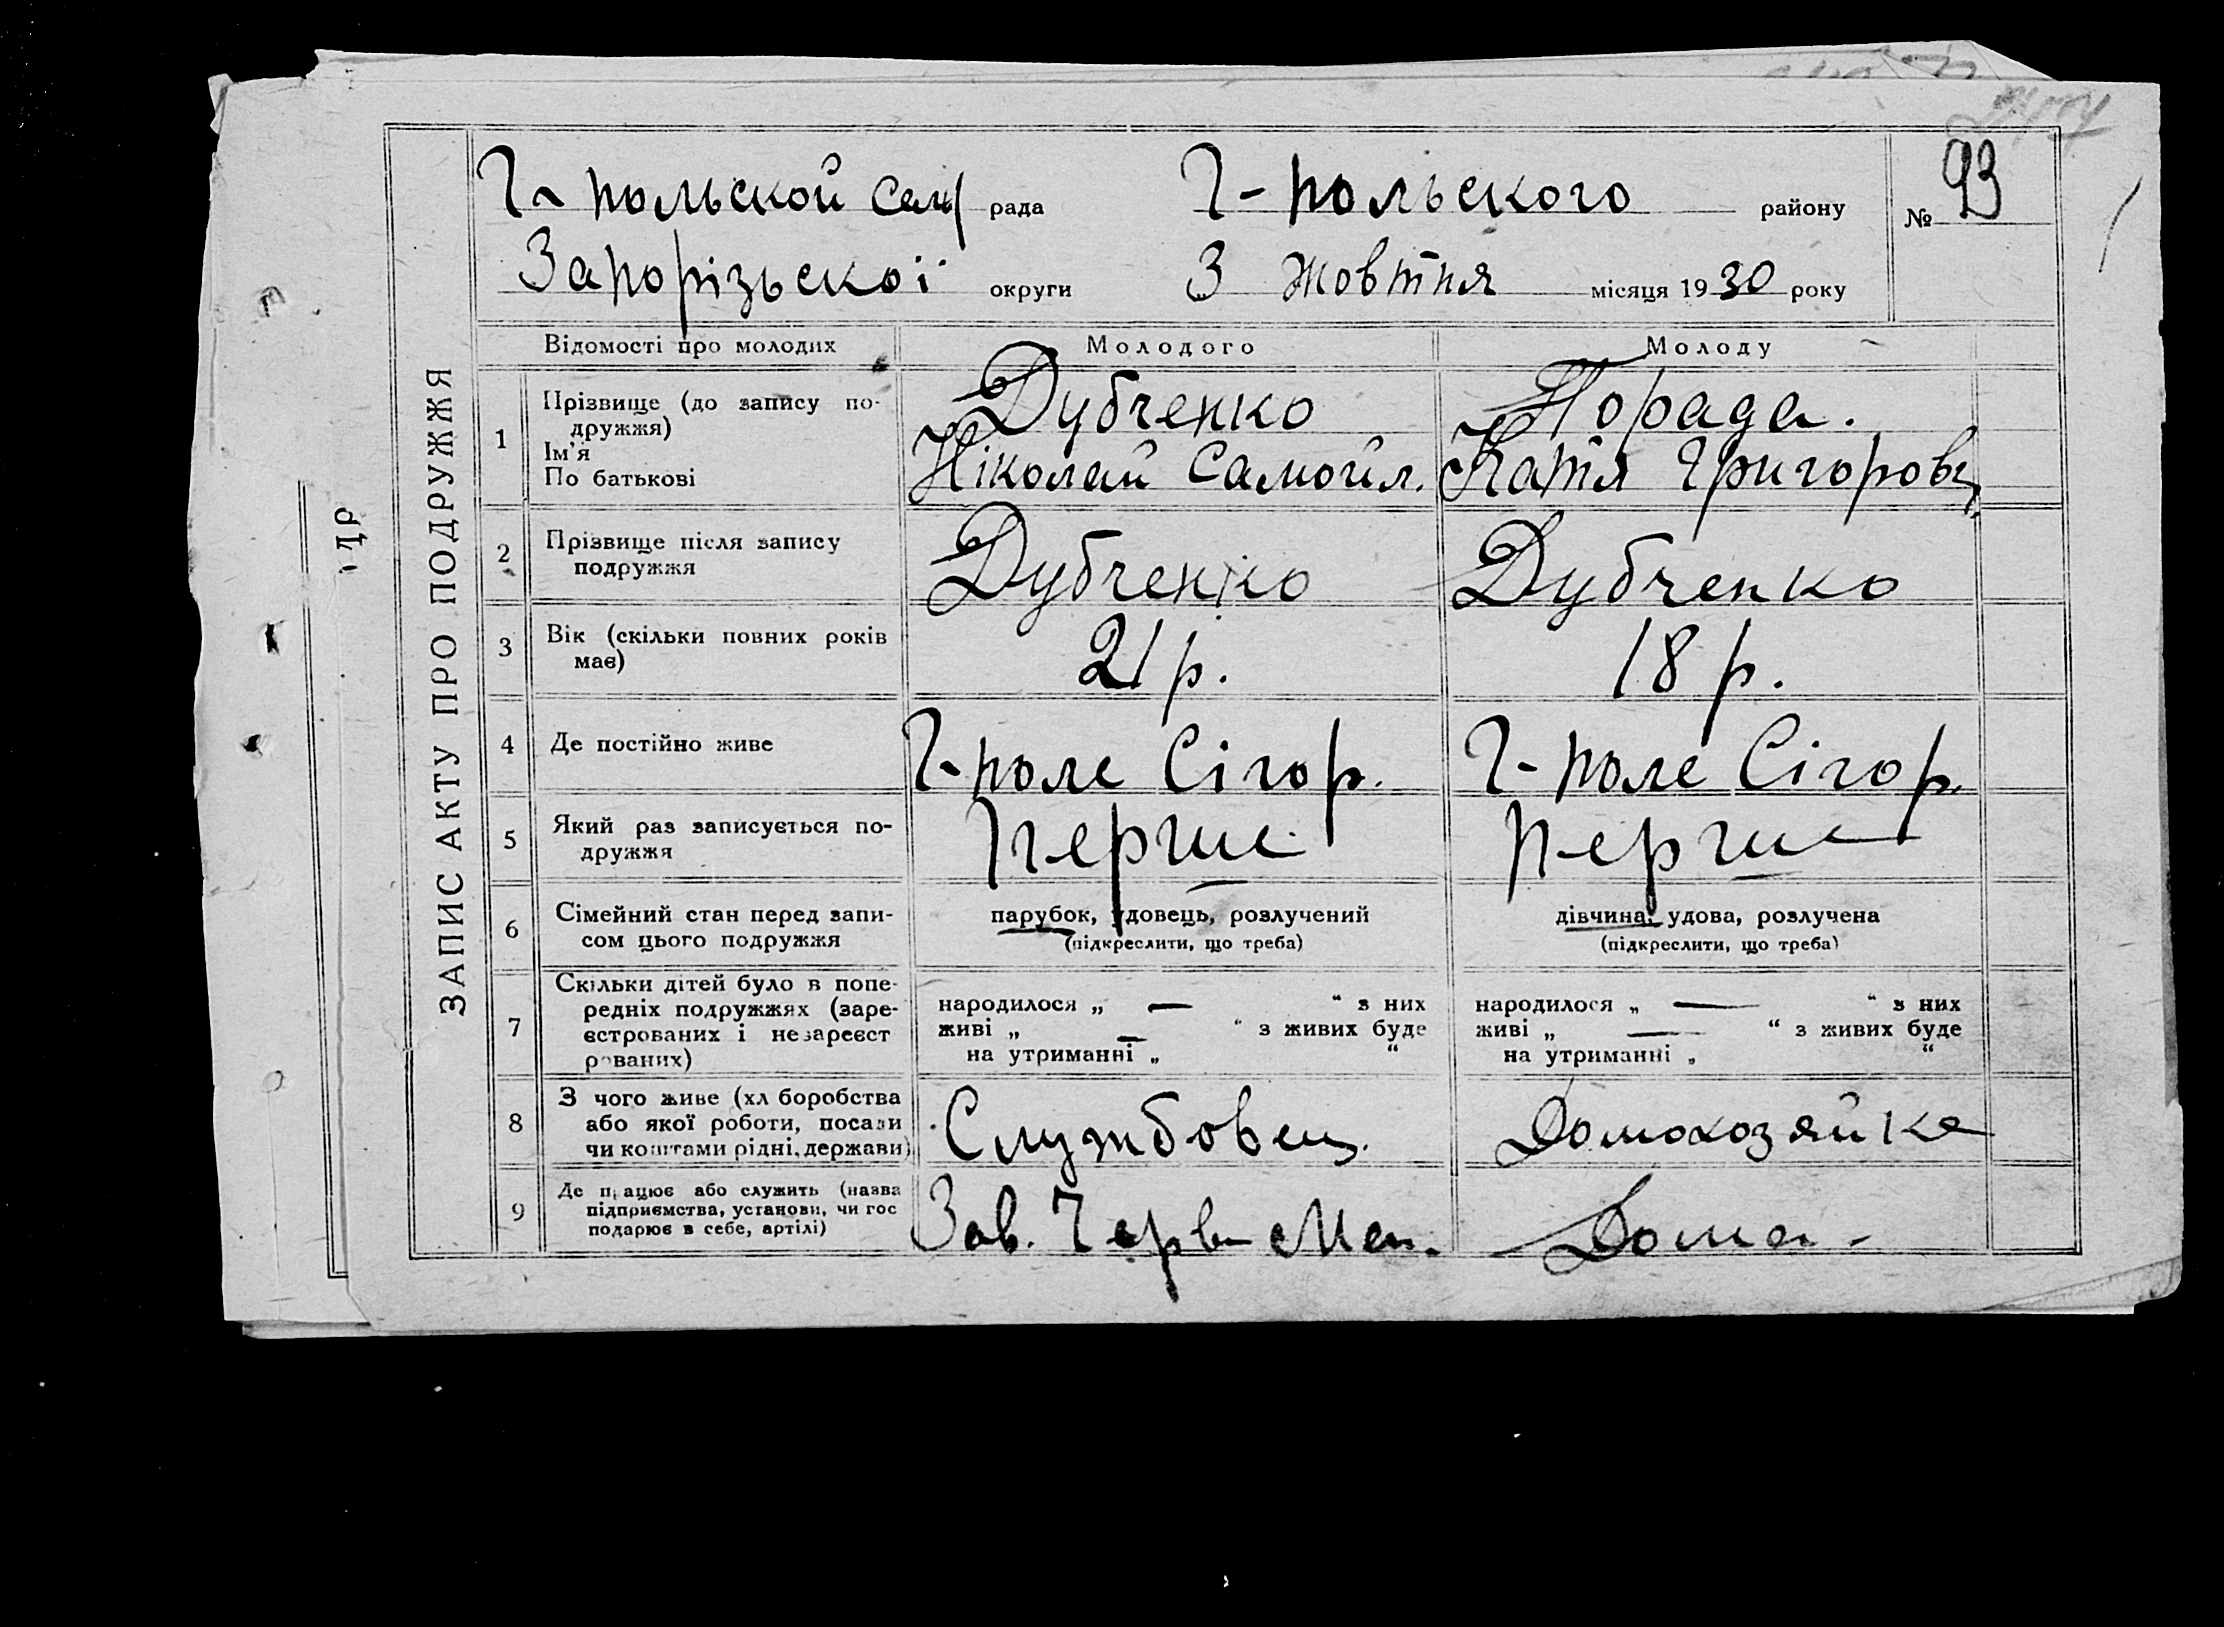 Г-польской сель рада Г-польского району № 93
Запорізьскої округи 3 Жовтня місяця 1930 року
ЗАПИС АКТУ ПРО ПОДРУЖЖЯ
Відомості про молодих Молодого Молоду
1 Прізвище (до запису по-дружжя) Дубченко Порада.
Ім'я
По батькові Ніколай Самойл. Катя Григоровн
2 Прізвище після запису Дубченко Дубченко
подружжя
3 Вік (скільки повних років 21 р. 18 р.
має)
4 Де постійно живе Г-поле Сігор. Г-поле Сігор.
5 Який раз записується по- Перше Перше
дружжя
6 Сімейний стан перед запи- парубок, удовець, розлучений дівчина, удова, розлучена
сом цього подружжя (підкреслити, що треба) (підкреслити, що треба)
7 Скільки дітей було в попе-
редніх подружжях (заре- народилося „ — “ з них народилося „ — “ з них
єстрованих і незареєст живі „ — “ з живих буде живі „ — “ з живих буде
рованих) на утриманні „ “ на утриманні „ “
8 З чого живе (хл боробства
або якої роботи, посади Службовец. Домохозяйка
чи коштами рідні, держави)
9 Де працює або служить (назва
підприємства, установи, чи гос Зав. Черв Мет. Дома -
подарює в себе, артілі)